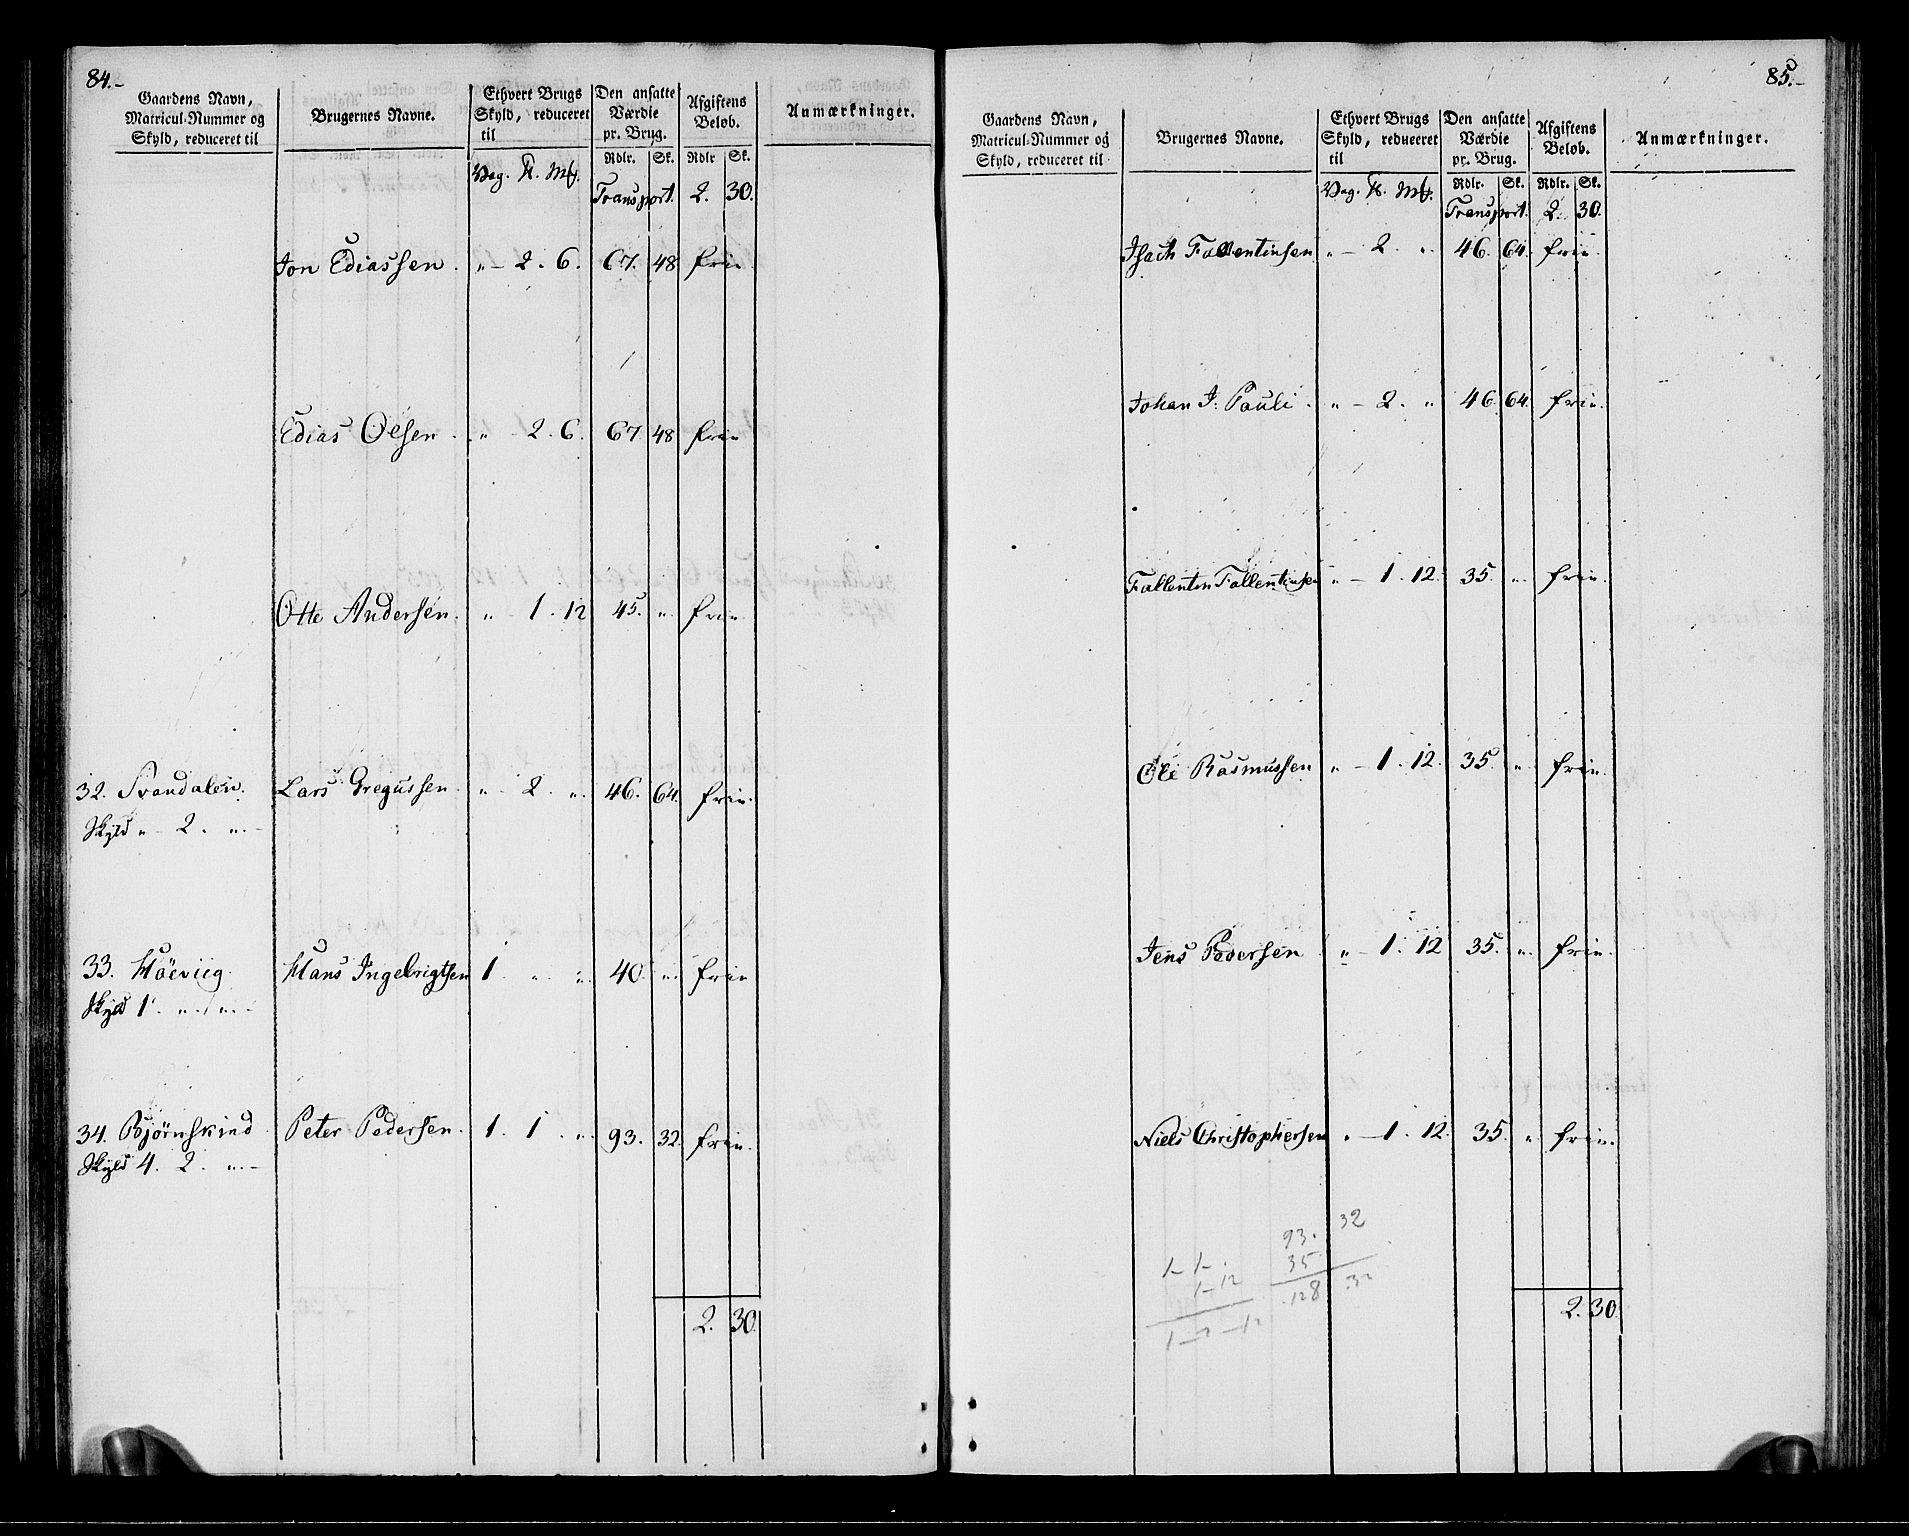 84.-
Gaardens Navn, Matricul-Nummer og Skyld, reduceret til
Brugernes Navne.
Ethvert Brugs Skyld, reduceret til
Den ansatte Værdie pr. Brug.
Afgiftens Beløb.
Anmærkninger.
Rdlr. Sk. Rdlr Sk.
Vog. Transport. 2. 30.
Jon Ediassen. " - 2. 6. 67. 48 frie
Edias Olsen. " - 2. 6. 67 48 frie
Otte Andersen. " - 1. 12 45. " frie.
32. Svandalen. Lars Gregussen. " - 2. ". 46. 64. frie.
Skyld " - 2. ". -
33. Høeviig. Hans Ingebrigtsen 1. " ". 40. ". frie
Skyld 1. ". ". -
34. Bjørnskind Peter Pedersen. 1. 1. ". 93. 32. frie.
Skyld 4. 2. ". -
2. 30.
85.-
Gaardens Navn, Matricul-Nummer og Skyld, reduceret til
Brugernes Navne.
Ethvert Brugs Skyld, reduceret til
Den ansatte Værdie pr. Brug.
Afgiftens Beløb.
Anmærkninger.
Rdlr. Sk. Rdlr. Sk.
Vog. Transport. 2. 30.
Isach Fallentinsen " - 2. " 46. 64. frie.
Johan J. Pauli. " - 2. " 46. 64. frie.
Fallentin Fallentinsen " - 1. 12. 35. ". frie.
Ole Rasmussen " - 1. 12. 35. ". frie.
Jens Pedersen " - 1. 12 35. ". frie.
Niels Christophersen " - 1. 12. 35. " frie.
93. 32
1- 1-. 35
1-12 128 32
1-2-12
2. 30.